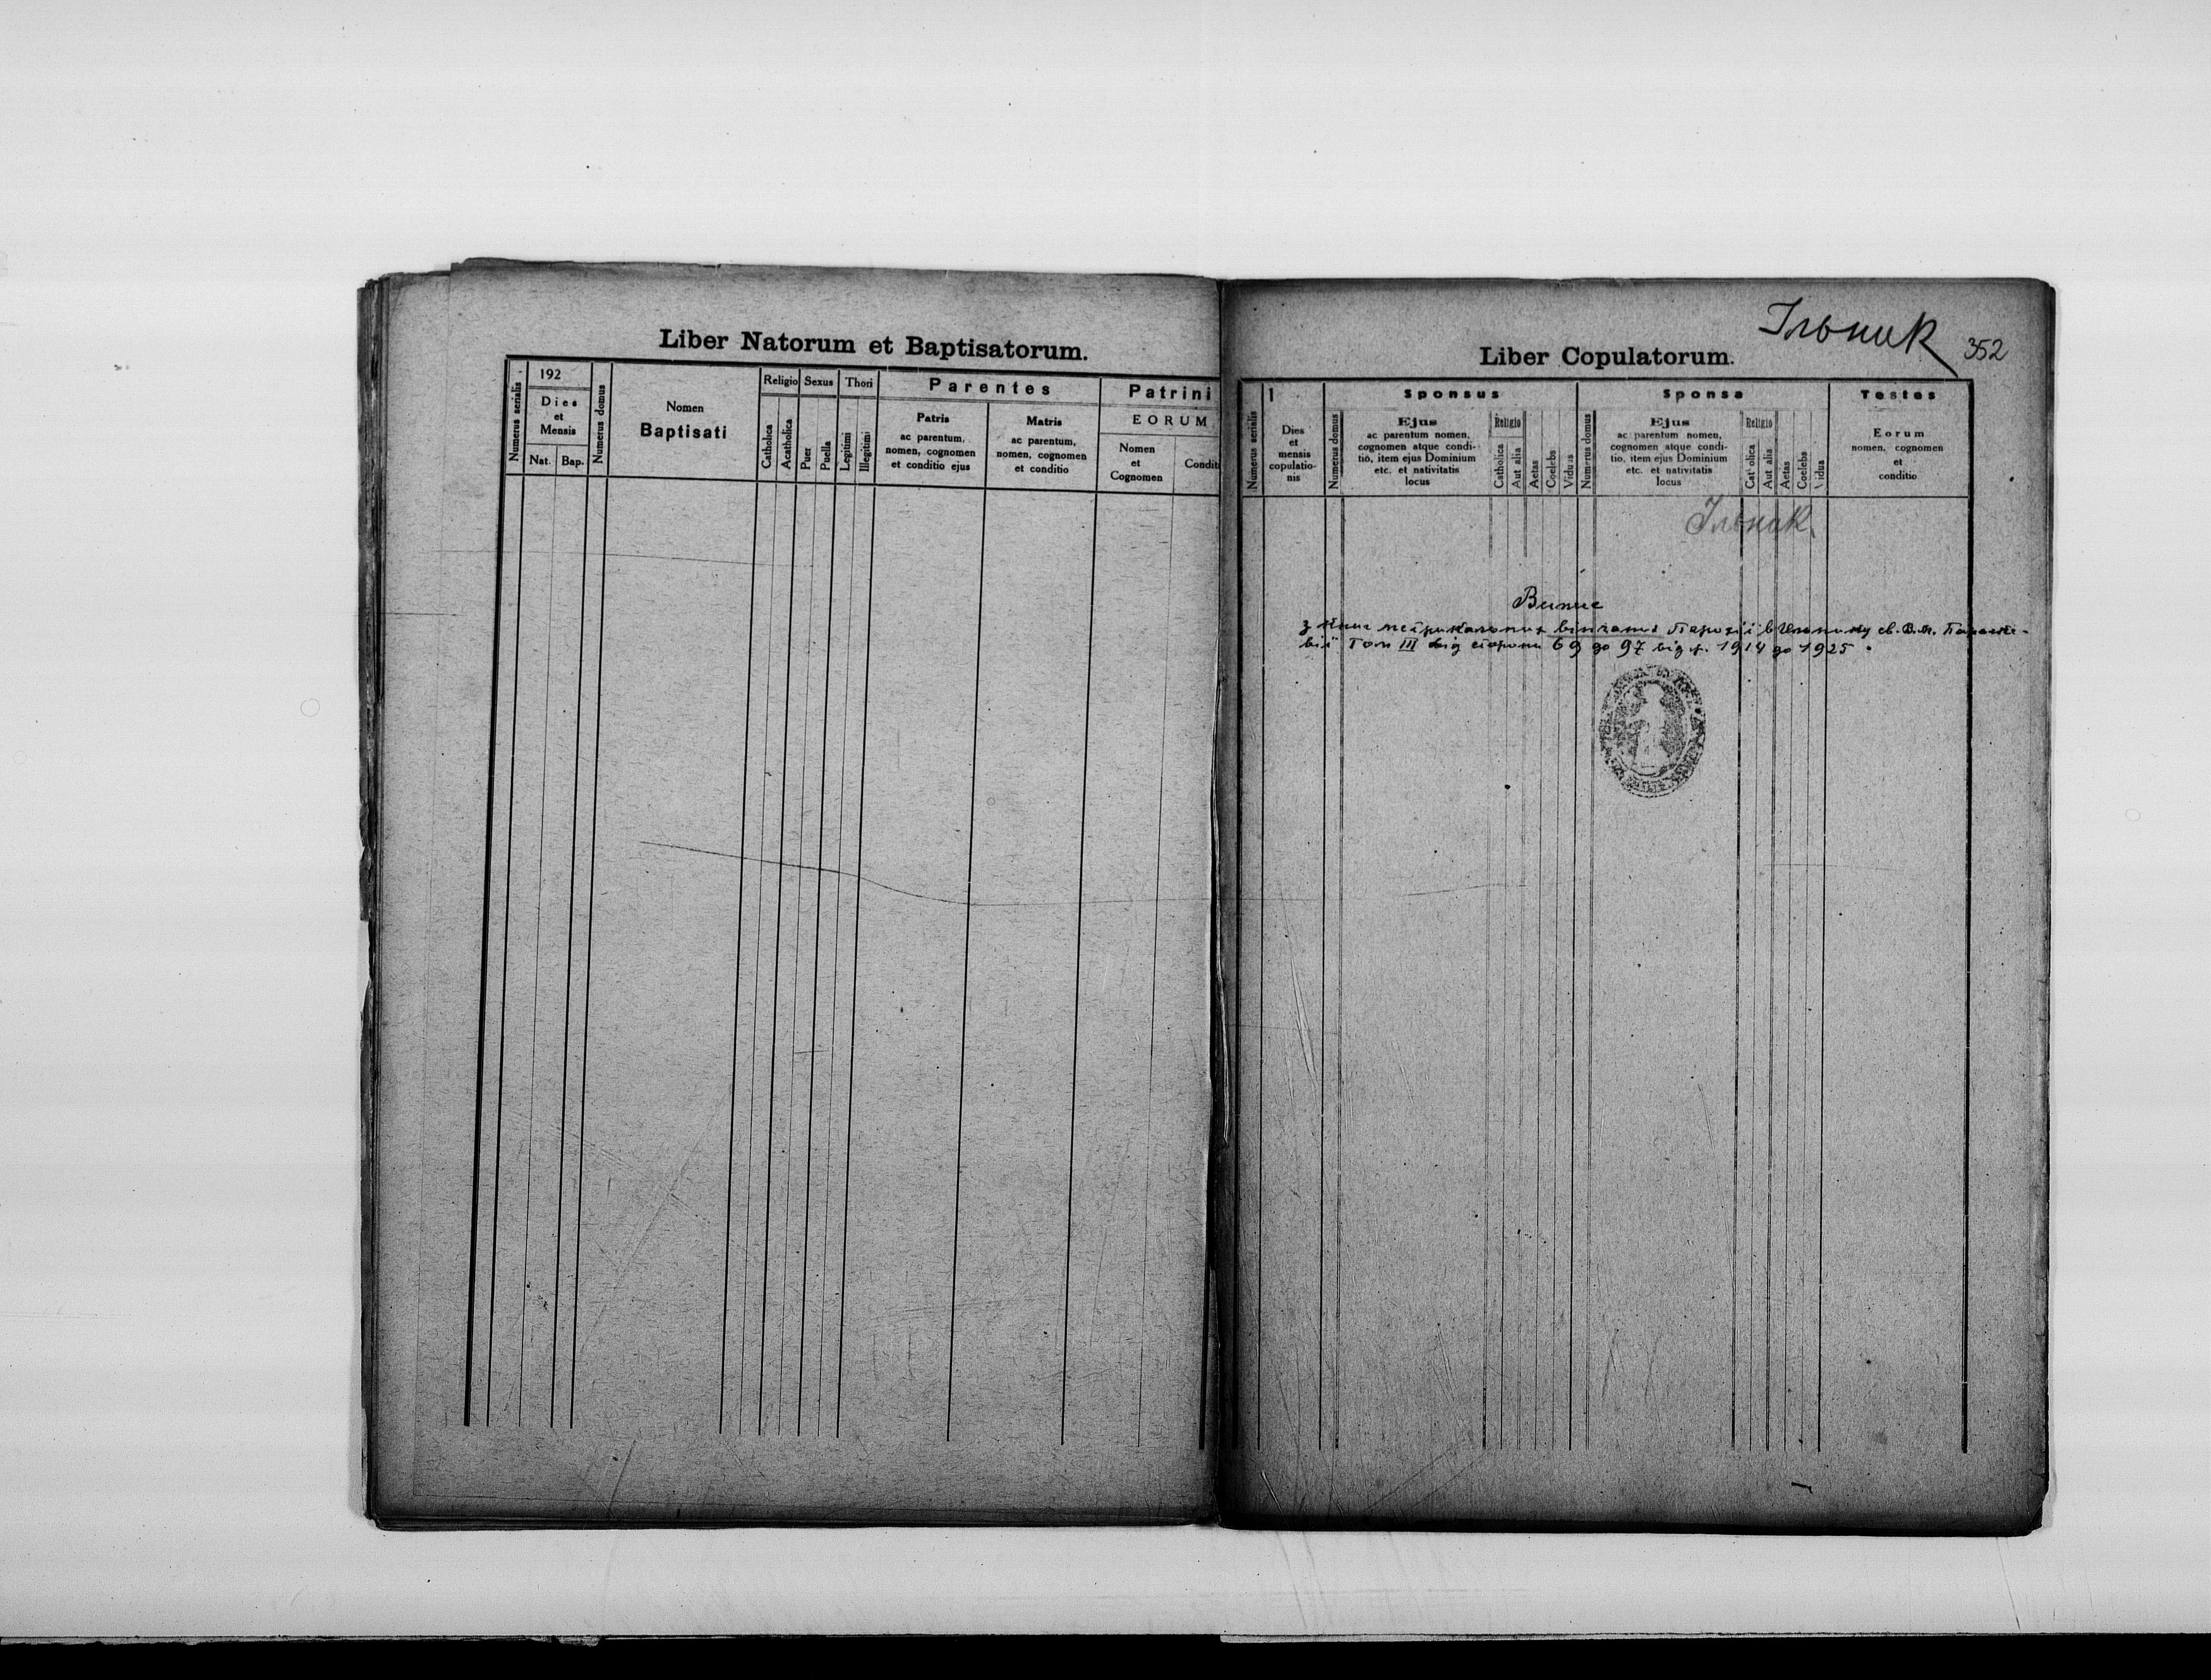 Liber Natorum et Baptisatorum.
Numerus serialis
192
Dies
et
Mensis
Nat.
Bap.
Numerus domus
Nomen
Baptisati
Religio
Catholica
Acatholica
Sexus
Puer
Puella
Thori
Legitimi
Illegitimi
Parentes
Patris
ac parentum,
nomen, cognomen
et conditio ejus
Matris
ac parentum,
nomen, cognomen
et conditio
Patrini
EORUM
Nomen
et
Cognomen
Condit
Ільник
352
Liber Copulatorum.
Numerus serialis
1
Dies
et
mensis
copulatio-
nis
Sponsus
Numerus domus
Ejus
ac parentum nomen,
cognomen atque condi-
tio, item ejus Dominium
etc. et nativitatis
locus
Religio
Catholica
Aut alia
Aetas
Coelebs
Viduus
Sponsa
Numerus domus
Ejus
ac parentum nomen,
cognomen atque condi-
tio, item ejus Dominium
etc. et nativitatis
locus
Religio
Cat olica
Aut alia
Aetas
Coelebs
Vidua
Testes
Eorum
nomen, cognomen
et
conditio
Ільник
Випис
з книг метрикальних вінчаних Парохії в Ільнику св. В. М. Параске-
вії Том III від сторони 69 до 97 від р. 1914 до 1925.